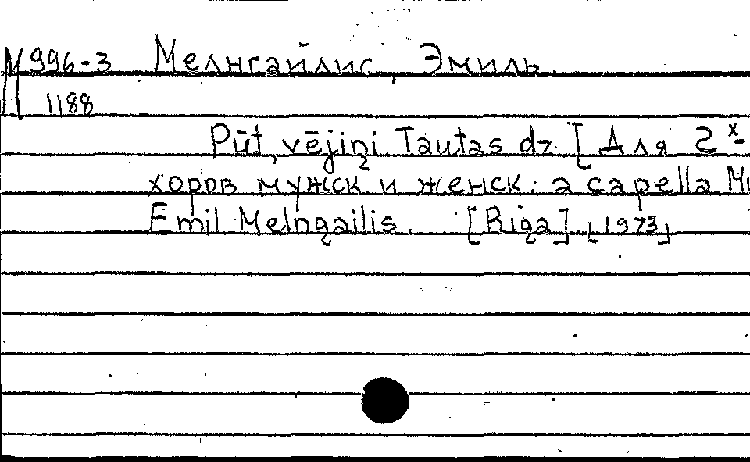 М996-3 Мелнгайлис, Эмиль.
1188
Pūt, vējiņi Tautas dz. [Для 2х-
хоров мужск. и женск. a capella
Emil Melngailis. [Riga] [1973]